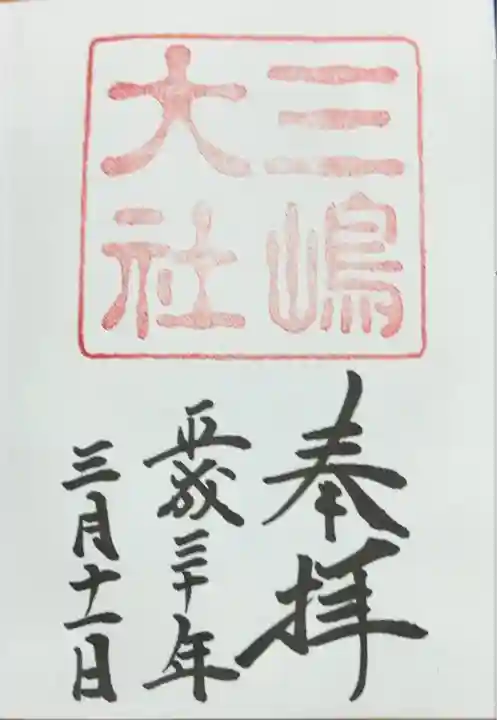 三嶋
大社
奉拝
平成三十年
三月十一日